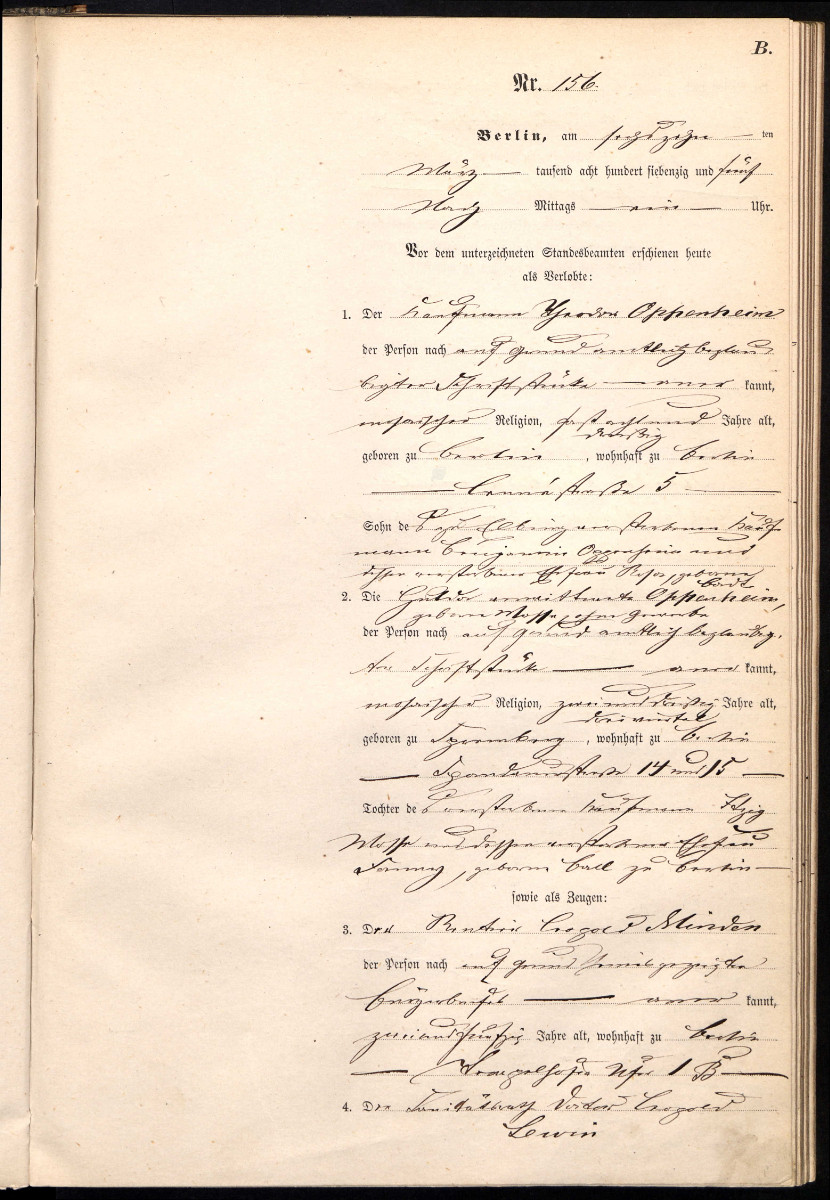 B.
Nr. 156.
Berlin, am sechszehn ten
März tausend acht hundert siebenzig und fünf
Nach Mittags ein Uhr.
Vor dem unterzeichneten Standesbeamten erschienen heute
als Verlobte:
1. Der Kaufmann Theodor Oppenheim
der Person nach auf Grund amtlich beglau
bigter Schriftstücke aner kannt,
mosaischer Religion, fast acht und Jahre alt,
dreißig
geboren zu Berlin, wohnhaft zu Berlin
Lennéstraße 5
Sohn des zu Elbing verstorbenen Kauf
mann Benjamin Oppenheim und
dessen verstorbener Ehefrau Rosa, geborene
2. Die Hulda verwittwete Oppenheim,
geborene Mosse, ohne Gewerbe
der Person nach auf Grund amtlich beglaubig
ter Schriftstücke aner kannt,
mosaischer Religion, zwei und dreißig Jahre alt,
dreiviertel
geboren zu , wohnhaft zu Berlin
Spandauerstraße 14 und 15
Tochter des verstorbenen Kaufmann Itzig
Mosse und dessen verstorbene Ehefrau
Fanny, geborene Ball zu Berlin
sowie als Zeugen:
3. Der Rentier Leopold Minden
der Person nach auf Grund vorgezeigten
aner kannt,
zweiundfünfzig Jahre alt, wohnhaft zu Berlin
Tempelhofer Ufer 1 B
4. Der Sanitätsrath Doctor Leopold
Lewin